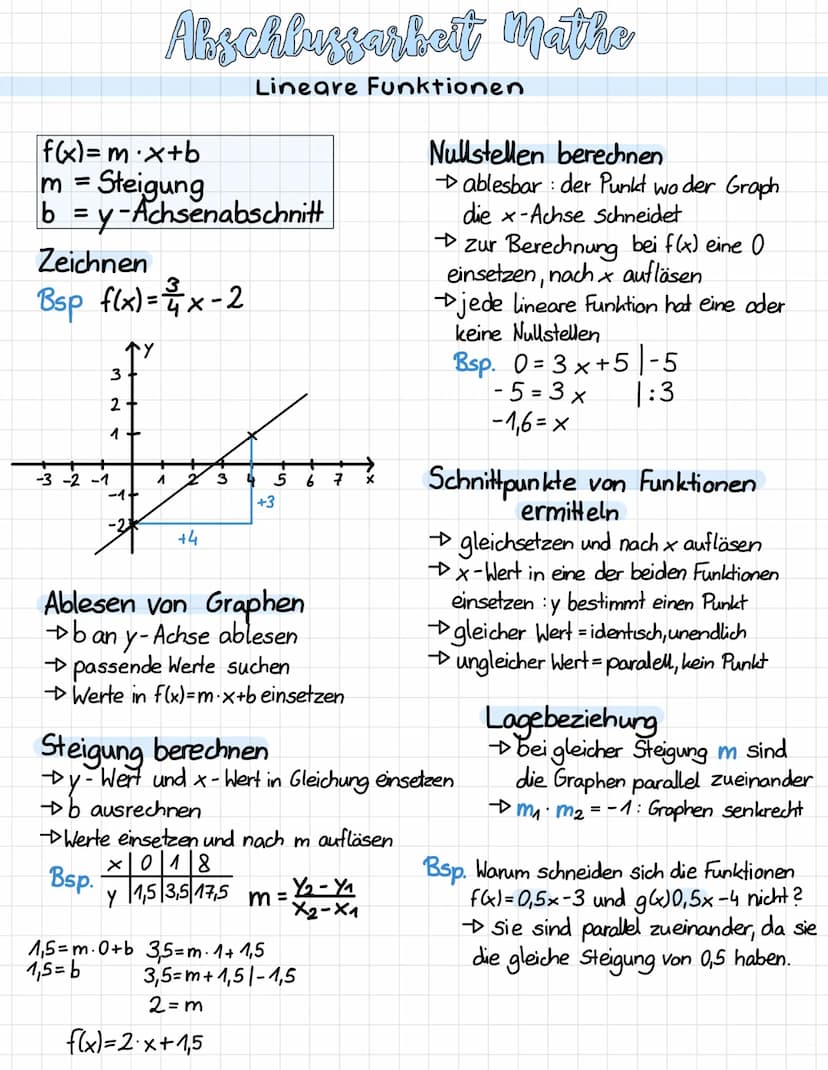 Abschlussarbeit Mathe
Lineare Funktionen
f(x)= m·x+b
m = Steigung
b = y-Achsenabschnitt
Zeichnen
Bsp f(x)=3/4 x-2
y
3
2
1
-3 -2 -1 1 2 3 4 5 6 7 x
-1
-2
+3
+4
Ablesen von Graphen
→ b an y-Achse ablesen
→ passende Werte suchen
→ Werte in f(x)=m·x+b einsetzen
Steigung berechnen
→ y-Wert und x-Wert in Gleichung einsetzen
→ b ausrechnen
→ Werte einsetzen und nach m aufläsen
Bsp.
x | 0 | 1 | 8
y | 1,5 | 3,5 | 17,5
m = Y2-Y1 / X2-X1
1,5=m·0+b 3,5=m·1+1,5
1,5=b 3,5=m+1,5 |-1,5
2=m
f(x)=2·x+1,5
Nullstellen berechnen
→ ablesbar : der Punkt wo der Graph
die x-Achse schneidet
→ zur Berechnung bei f(x) eine 0
einsetzen, nach x aufläsen
→ jede lineare Funktion hat eine oder
keine Nullstellen
Bsp. 0=3x+5 |-5
-5=3x |:3
-1,6=x
Schnittpunkte von Funktionen
ermitteln
→ gleichsetzen und nach x aufläsen
→ x-Wert in eine der beiden Funktionen
einsetzen : y bestimmt einen Punkt
→ gleicher Wert = identisch, unendlich
→ ungleicher Wert = paralell, kein Punkt
Lagebeziehung
→ bei gleicher Steigung m sind
die Graphen parallel zueinander
→ m1·m2 = -1: Graphen senkrecht
Bsp. Warum schneiden sich die Funktionen
f(x)=0,5x-3 und g(x)0,5x-4 nicht?
→ sie sind parallel zueinander, da sie
die gleiche Steigung von 0,5 haben.